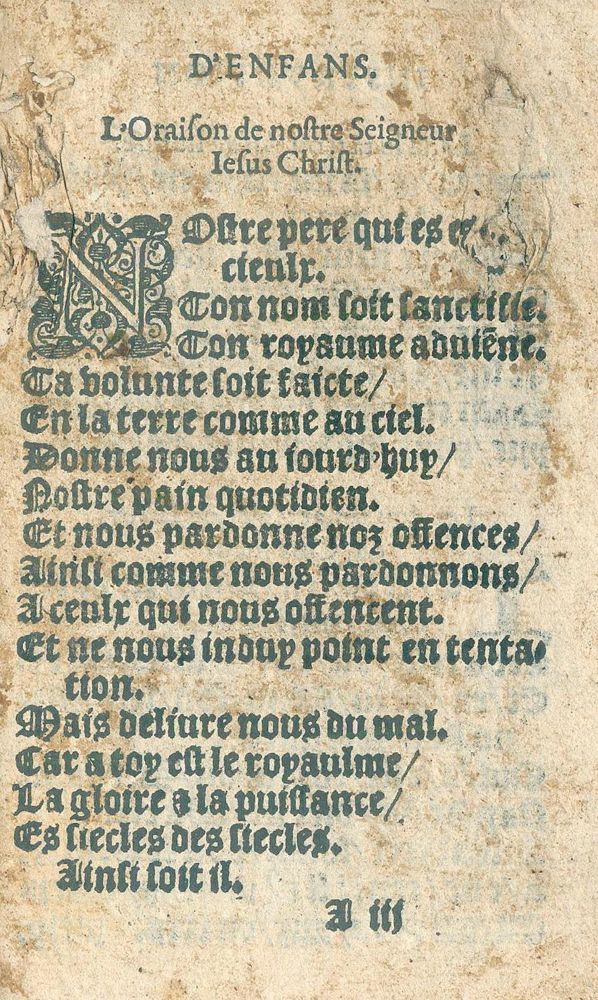 D'ENFANS.
L'Oraiſon de noſtre Seigneur
Ieſus Chriſt.
NOſtre pere qui es es
cieulx.
Ton nom ſoit ſanctifie.
Ton royaume aduiẽne.
Ta volunte ſoit faicte/
En la terre comme au ciel.
Donne nous au iourd'huy/
Noſtre pain quotidien.
Et nous pardonne noz offences/
Ainſi comme nous pardonnons/
A ceulx qui nous offencent.
Et ne nous induy point en tenta-
tion.
Mais deliure nous du mal.
Car a toy eſt le royaulme/
La gloire ⁊ la puiſſance/
Es ſiecles des ſiecles.
Ainſi ſoit il.
A iij